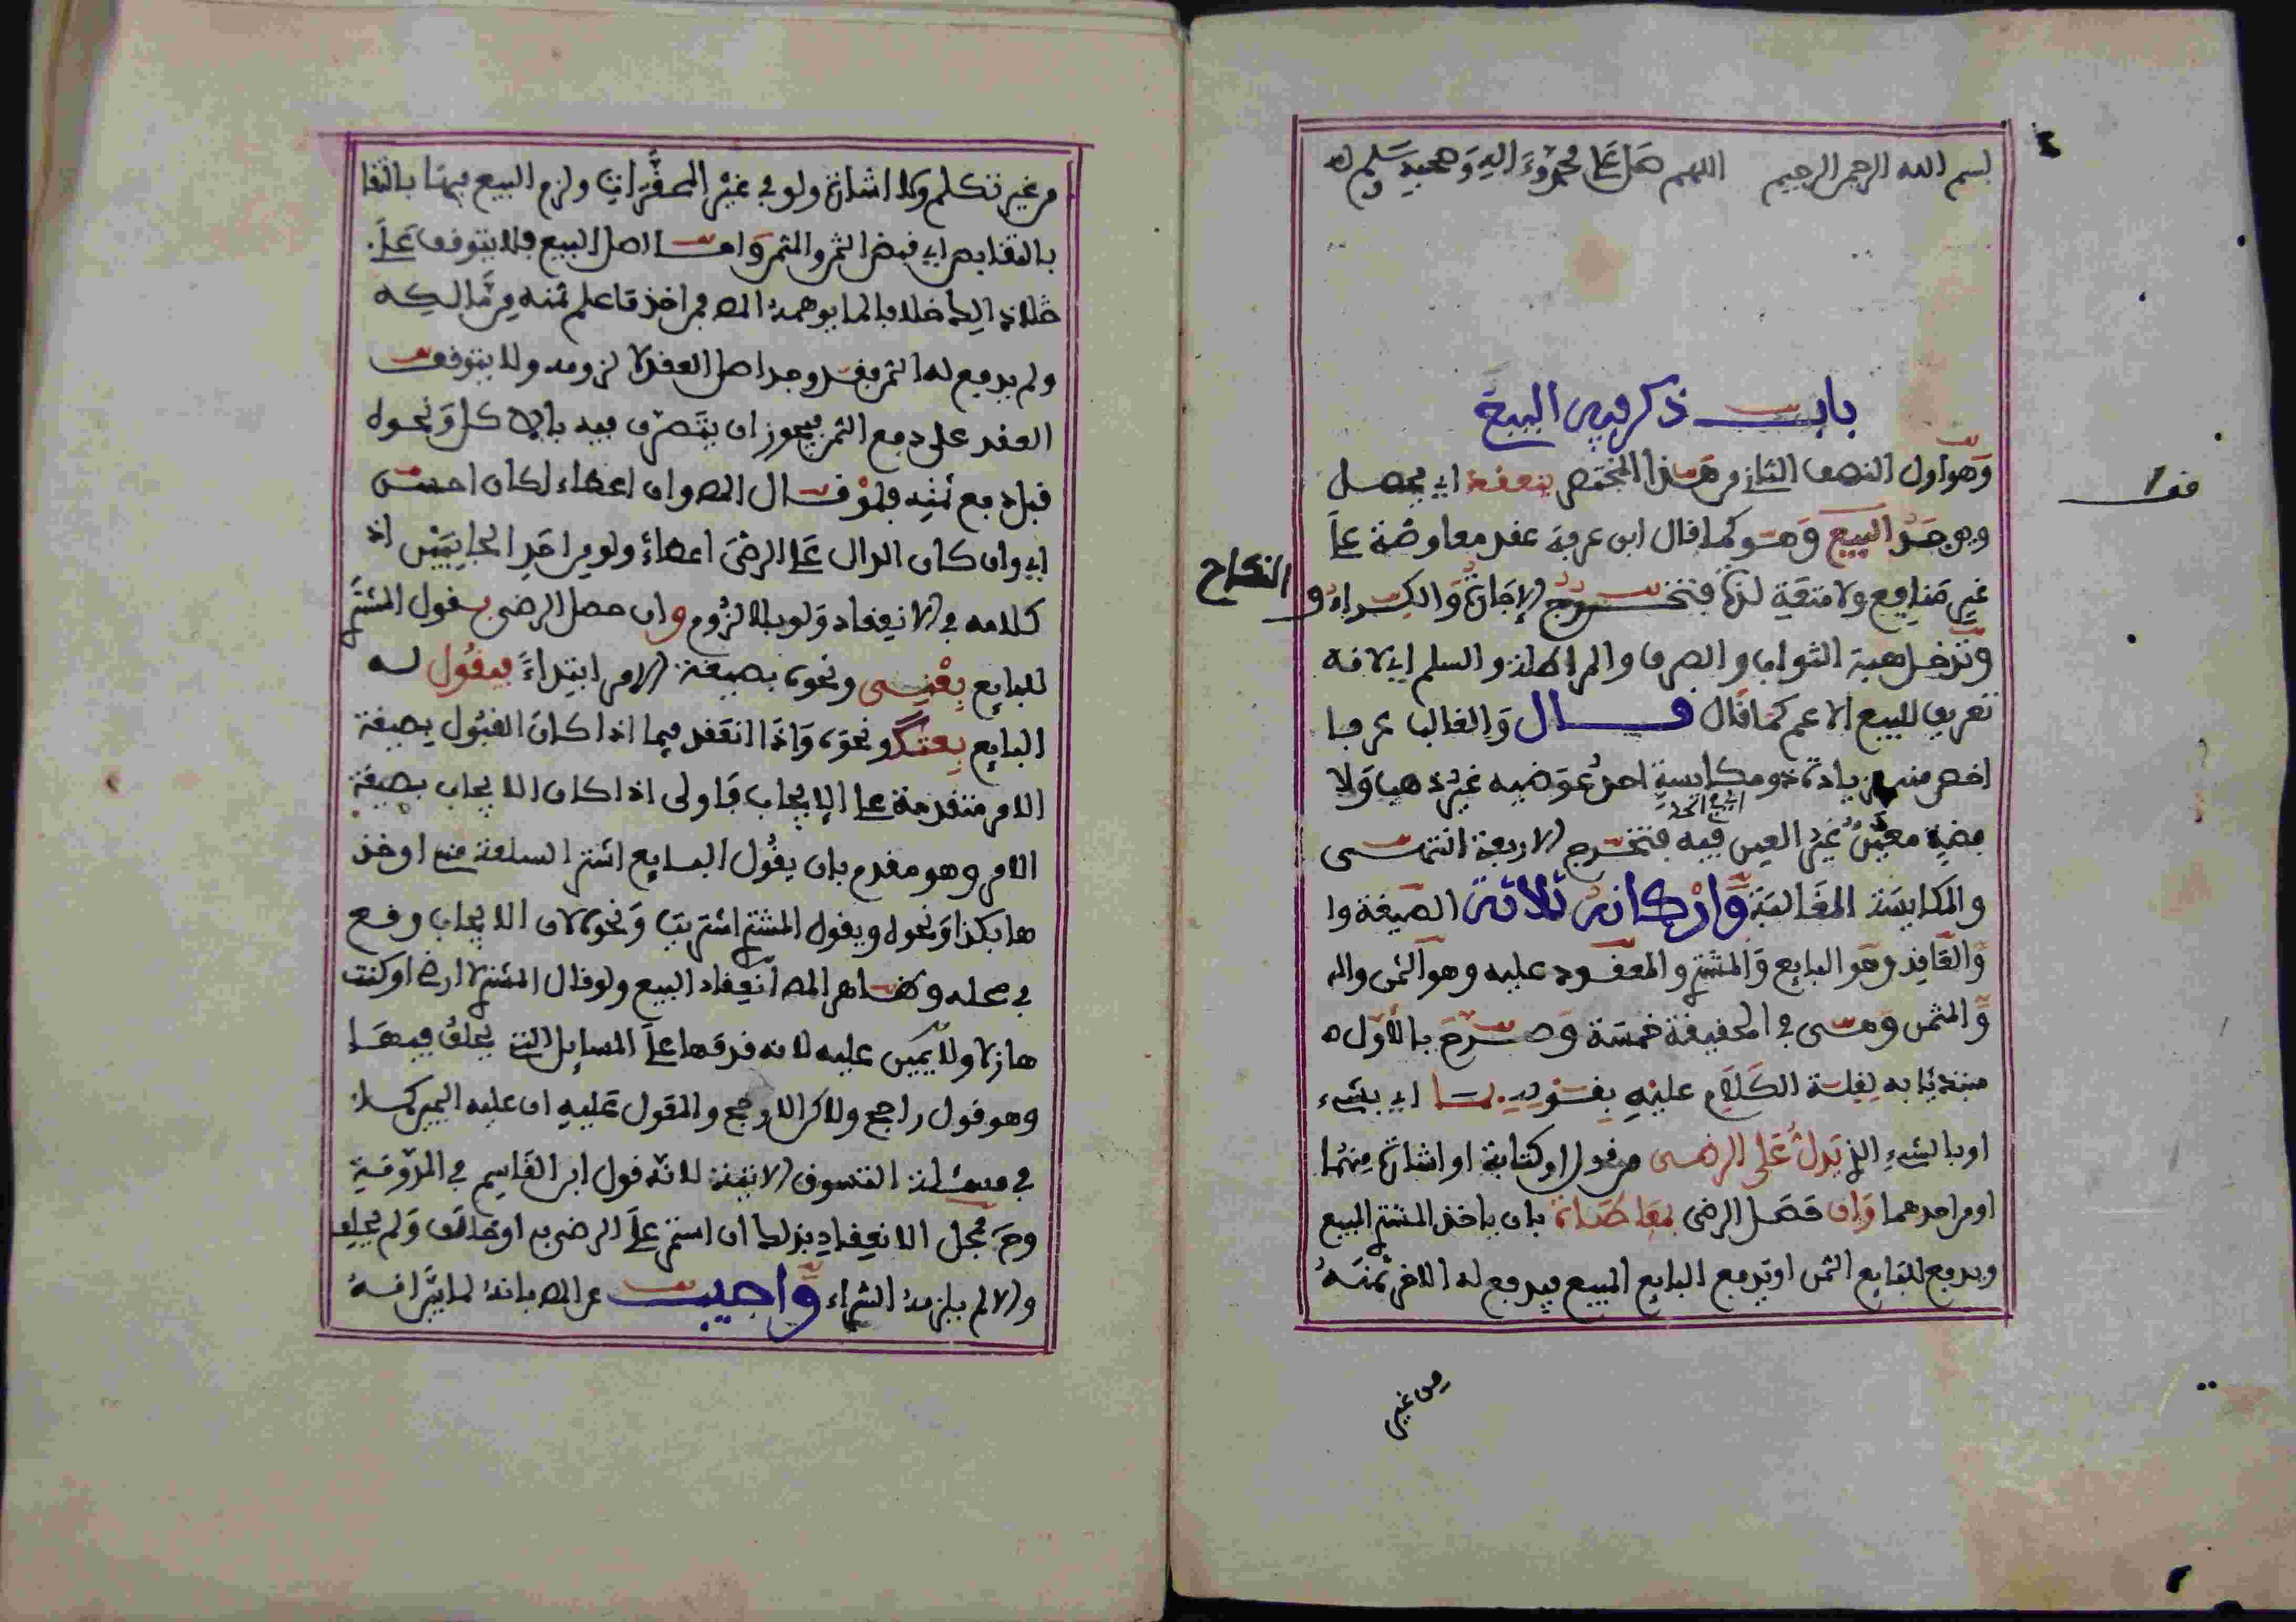 بسم الله الرحمن الرحيم اللهم صل على محمد وءاله وصحبه وسلم
باب ذكر فيه البيع
وهو اول النصف الثاني من هذا المختصر ينعقد اي يحصل
ويوجد البيع وهو كما قال ابن عرفة عقد معاوضة على
غير منافع ولا متعة لذة فتخرج الاجارة والكراء و
النكاح
وتدخل هبة الثواب والصرف والمراطلة والسلم اي لانه
تعريف للبيع الاعم كما قال قال والغالب عرفا
اخص منه بزيادة ذو مكايسة احد عوضيه غير ذهب ولا
فضة معين غير العين فيه فتخرج الاربعة انتهى
والمكايسة المغالبة واركانه ثلاثة الصيغة وا
والعاقد وهو البايع والمشتر والمعقود عليه وهو الثمن والم
والمثمن وهي في الحقيقة خمسة وصرح بالاول
مبتدئا به لقلة الكلام عليه بقوله بما اي بشيء
او بالشيء الذ يدل على الرضى من قول او كتابة او اشارة منهما
او من احدهما وان حصل الرضى بمعاطاة بان ياخذ المشتر المبيع
ويدفع للبايع الثمن او يدفع البايع المبيع فيدفع له الاخر ثمنه
من غير
من غير تكلم ولا اشارة ولو في غير المحقرات ولزم البيع فيها بالتقا
بالتقابض اي قبض الثمن والمثمن واما اصل البيع فلا يتوقف على
ذلك خلافا لما يوهمه المص فمن اخذ ما علم ثمنه من مالكه
ولم يدفع له الثمن فقد وجد اصل العقد لا لزومه ولا يتوقف
العقد على دفع الثمن فيجوز ان يتصرف فيه بالاكل ونحوه
قبل دفع ثمنه فلو قال المص وان اعطاء لكان احسن
اي وان كان الدال على الرضى اعطاء ولو من احد الجانبين اذ
كلامه في الانعقاد ولو بلا لزوم وان حصل الرضى بقول المشتر
للبايع بعني ونحوه بصيغة الامر ابتداء فيقول له
البايع بعتك ونحوه واذا انعقد فيما اذا كان القبول بصيغة
الامر متقدمة على الايجاب فاولى اذا كان الايجاب بصيغة
الامر وهو مقدم بان يقول البايع اشتر السلعة مني او خذ
ها بكذا ونحوه ويقول المشتر اشتريت ونحوه لان الايجاب وقع
في محله وظاهر المص انعقاد البيع ولو قال المشتر لا ارضى او كنت
هازلا ولا يمين عليه لانه فرقها على المسايل التي يحلف فيها
وهو قول راجح ولاكن الارجح والمعول عليه ان عليه اليمين كما
في مسئلة التسوق الاتية لانه قول ابن القاسم في المدونة
ومحل الانعقاد بذلك ان استمر على الرضى به او خالف ولم يحلف
والا لم يلزمه الشراء واجيب عن المص بانه لما